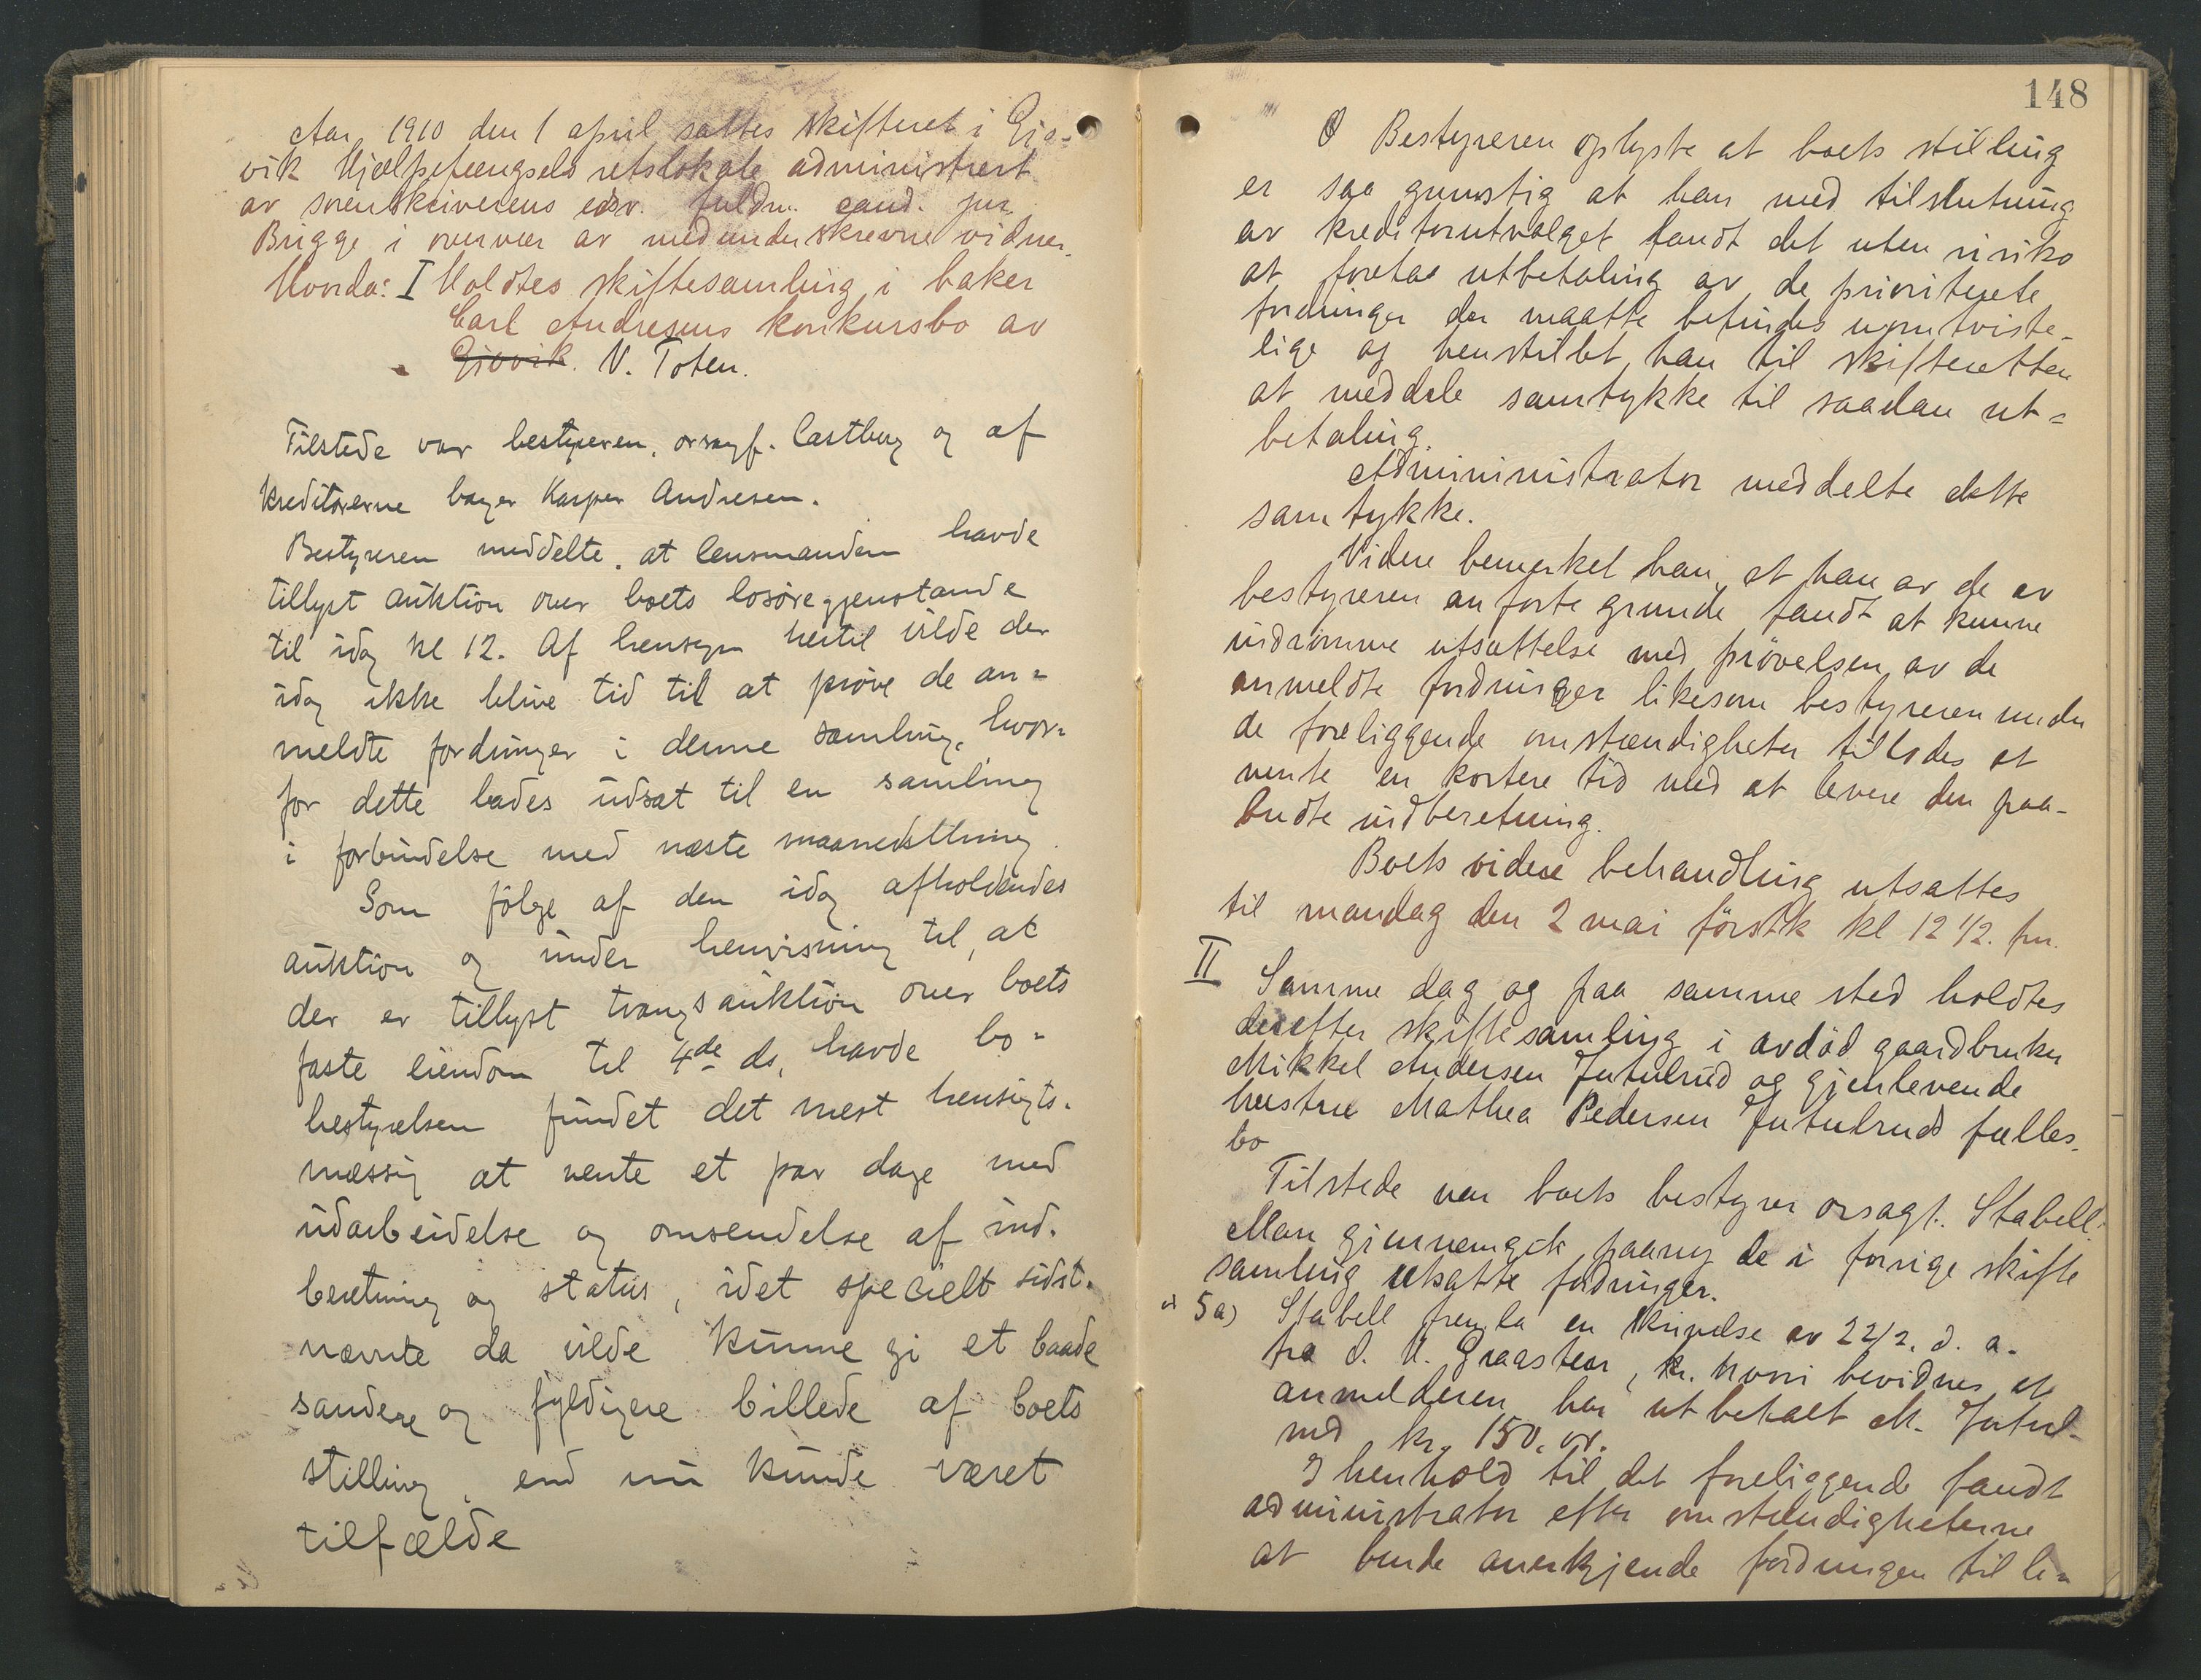 Aar 1910 den 1 april sattes skifteret i Gjø-
vik Hjælpefængsels retslokale administrert
av sorenskriverens edsv. fuldm. cand. jur.
Brigge i overvær av medunderskrevne vidner.
Hvorda: I Holdtes skiftesamling i baker
Carl Andresens konkursbo av
Gjøvik. V. Toten.
Tilstede var bestyreren, orsagf. Castberg og af
kreditorerne bager Kasper Andresen.
Bestyreren meddelte, at lensmanden havde
tillyst auktion over boets løsøregjenstande
til idag kl 12. Af hensyn hertil vilde der
idag ikke blive tid til at prøve de an-
meldte fordringer i denne samling, hvor-
for dette bades udsat til en samling
i forbindelse med næste maanedstthing.
Som følge af den idag afholdendes
auktion og under henvisning til, at
der er tillyst tvangsauktion over boets
faste eiendom til 4de ds, havde bo-
bestyrelsen fundet det mest hensigts-
mæssig at vente et par dage med
udarbeidelse og omsendelse af ind-
beretning og status, idet specielt sidst-
nævnte da vilde kunne gi et baade
sandere og fyldigere billede af boets
stilling, end nu kunde været
tilfælde
148
Bestyreren oplyste at boets stilling
er saa gunstig at han med tilslutning
av kreditorutvalget fandt det uten risiko
at foreta utbetaling av de prioriterte
fordringer der maatte befindes uomtviste-
lige og henstillet han til skifteretten
at meddele samtykke til saadan ut-
betaling.
Administrator meddelte dette
samtykke.
Videre bemerket han, at han av de av
bestyreren anførte grunde fandt at kunne
indrømme utsættelse med prøvelsen av de
anmeldte fordringer likesom bestyreren under
de foreliggende omstændigheter tillodes at
vente en kortere tid med at levere den paa-
budte indberetning.
Boets videre behandling utsattes
til mandag den 2 mai førstk kl 12 1/2. fm.
II Samme dag og paa samme sted holdtes
derefter skiftesamling i avdød gaardbruker
Mikkel Andersen Jutulrud og gjenlevende
hustru Mathea Pedersen Jutulruds fælles-
bo
Tilstede var boets bestyrer orsagf. Stabell.
Man gjennemgik paany de i forrige skifte
samling utsatte fordringer.
5a) Stabell fremla en skrivelse av 22/2. d. a.
fra O. H. Graasteen, kr. hvori bevidnes at
anmelderen har utbetalt M. Jutul-
rud kr. 150.00.
I henhold til det foreliggende fandt
administrator efter omstændigheterne
at burde anerkjende fordringen til li-